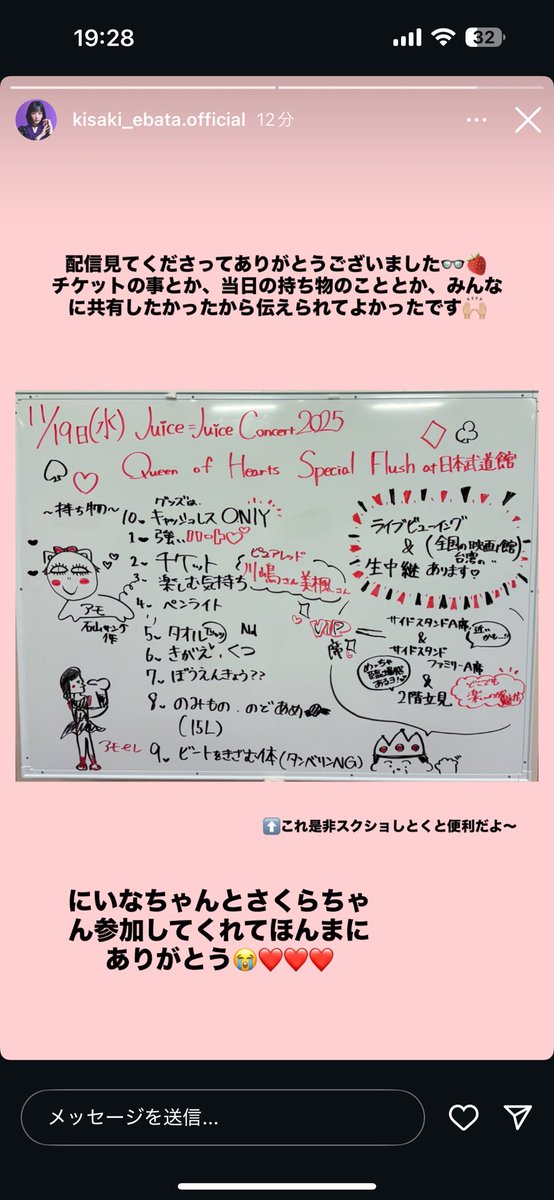 19:28
32
kisaki_ebata.official 12分
配信見てくださってありがとうございました👓🍓
チケットの事とか、当日の持ち物のこととか、みんな
に共有したかったから伝えられてよかったです🙌🏻
11/19日(水) Juice=Juice Concert 2025
Queen of Hearts Special Flush at 日本武道館
〜持ち物〜
グッズは、
10. キャッシュレス ONLY
1. 強い
2. チケット
3. 楽しむ気持ち
4. ペンライト
5. タオル
6. きがえ、くつ
7. ぼうえんきょう??
8. のみもの、のどあめ
(15L)
9. ビートをきざむ体(タンバリンNG)
アモ
石山サング作
ピュアレッド
川嶋さん美楓こん
ライブビューイング
&(全国の映画館
台湾の)
生中継あります♡
VIP
席!
サイドスタンドA席
近いかも…!
&
サイドスタンド
ファミリーA席
めっちゃ
臨場感
あるヨ♡
&
2階立見
どこでも
⬆️これ是非スクショしとくと便利だよ〜
にいなちゃんとさくらちゃ
ん参加してくれてほんまに
ありがとう😭❤️❤️❤️
メッセージを送信...